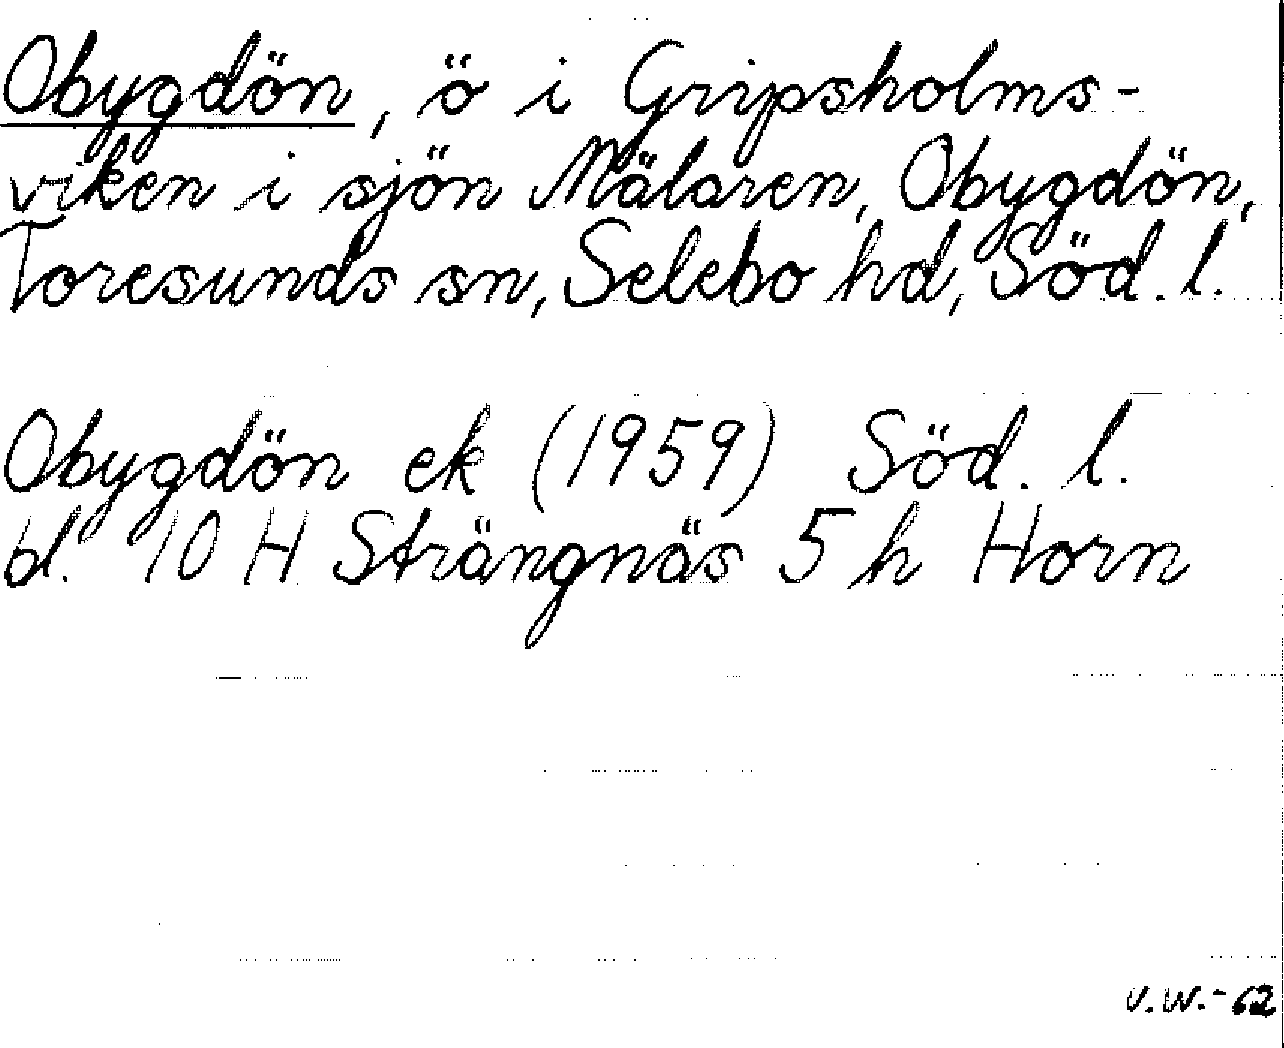 Obygdön, ö i Gripsholms-
viken i sjön Mälaren, Obygdön,
Toresunds sn, Selebo hd, Söd. l.
Obygdön ek (1959) Söd. l.
bl. 10 H Strängnäs 5 h Horn
v.w.-62